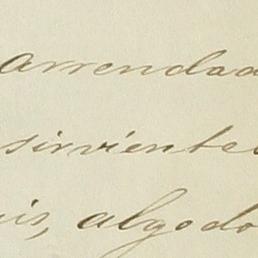 arrendad
sirviente
is, algodo